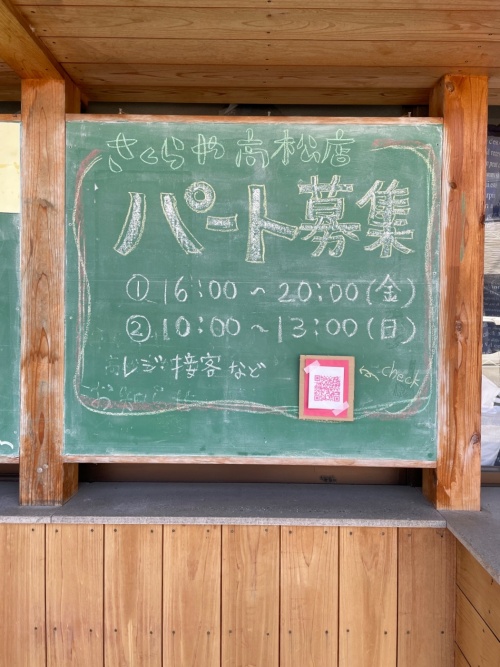 さくらや高松店
パート募集
① 16:00 〜 20:00(金)
② 10:00 〜 13:00(日)
レジ・接客など
check